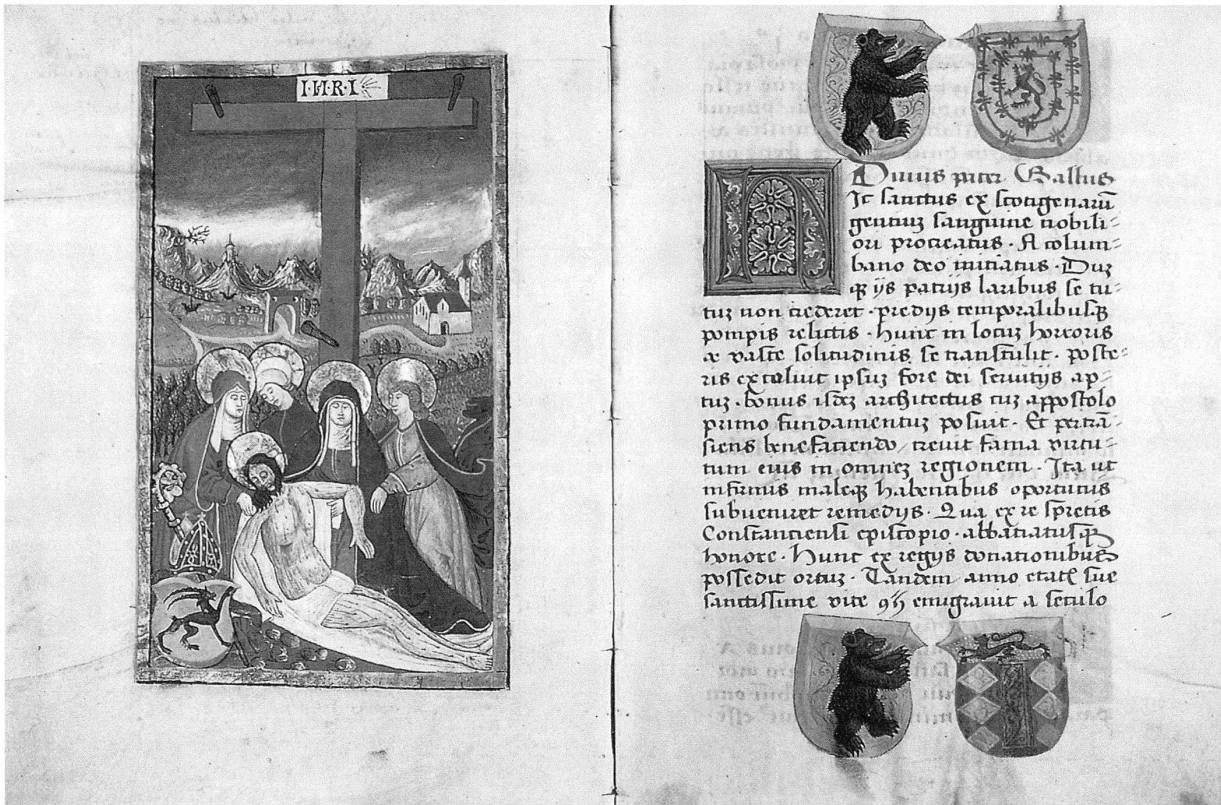 I·N·R·I
Divus pater Gallus
Ic sanctus ex scotigenarũ
gentiuʒ sanguine nobili=
ori procreatus · A colum=
bano deo initiatus · Duʒ
qʒ ijs patrijs laribus se tu=
tuʒ non crederet · predijs temporalibusqʒ
pompis relictis · hunc in locuʒ horroris
et vaste solitudinis se transtulit · poste=
ris excoluit ipsuʒ fore dei servitijs ap=
tuʒ · bonus isdeʒ architectus cuʒ appostolo
primo fundamentuʒ posuit · Et pertrã=
siens benefaciendo crevit fama virtu=
tum eius in omneʒ regionem · Ita ut
infirmis maleqʒ habentibus oportunis
subveniret remedijs · Qua ex re spretis
Constanciensi episcopio · abbatiatusqʒ
honore · Hunc ex regijs donationibus
possedit ortuʒ · Tandem anno etatꝭ sue
sanctissime vite emigravit a seculo